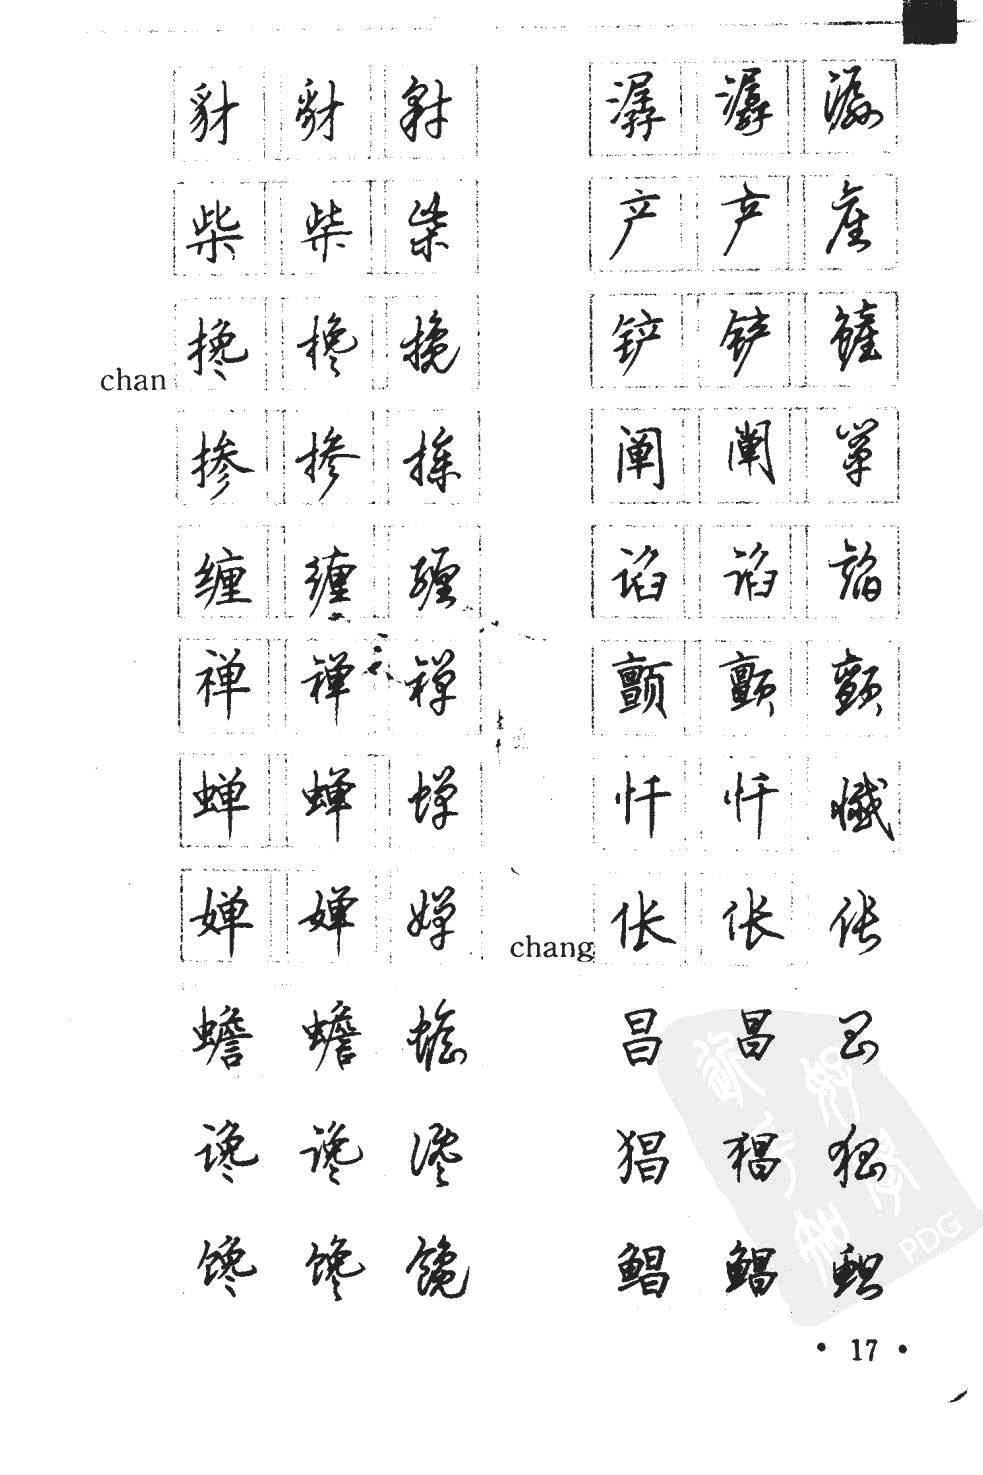 豺 豺 豺
柴 柴 柴
chan 搀 搀 搀
掺 掺 掺
缠 缠 缠
禅 禅 禅
蝉 蝉 蝉
婵 婵 婵
蟾 蟾 蟾
谗 谗 谗
馋 馋 馋
潺 潺 潺
产 产 產
铲 铲 鏟
阐 阐 阐
谄 谄 谄
颤 颤 颤
忏 忏 懺
chang 伥 伥 伥
昌 昌 昌
猖 猖 猖
鲳 鲳 鲳
PDG
• 17 •